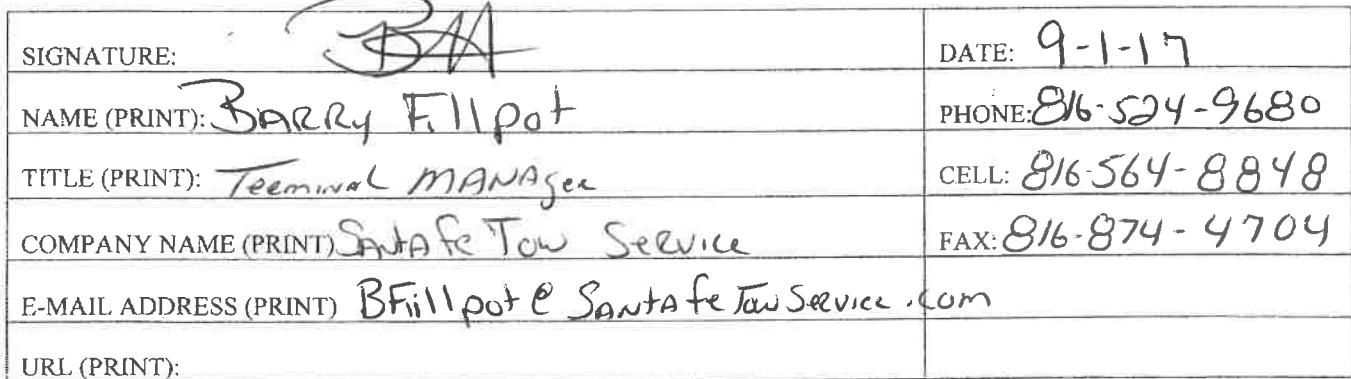 SIGNATURE: DATE: 9-1-17
NAME (PRINT): BARRy Fillpot PHONE: 816-524-9680
TITLE (PRINT): Terminal MANAger CELL: 816-564-8848
COMPANY NAME (PRINT) SANtA Fe Tow Service FAX: 816-874-4704
E-MAIL ADDRESS (PRINT) BFillpot@SANtAfeTowService.com
URL (PRINT):